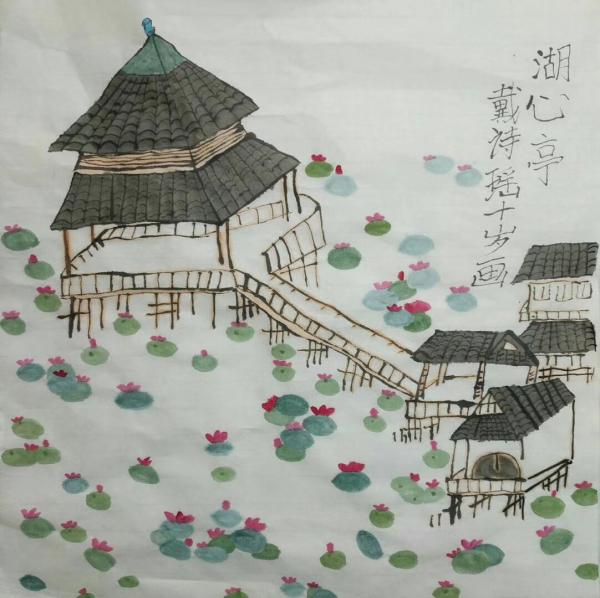 湖心亭
戴诗瑶十岁画